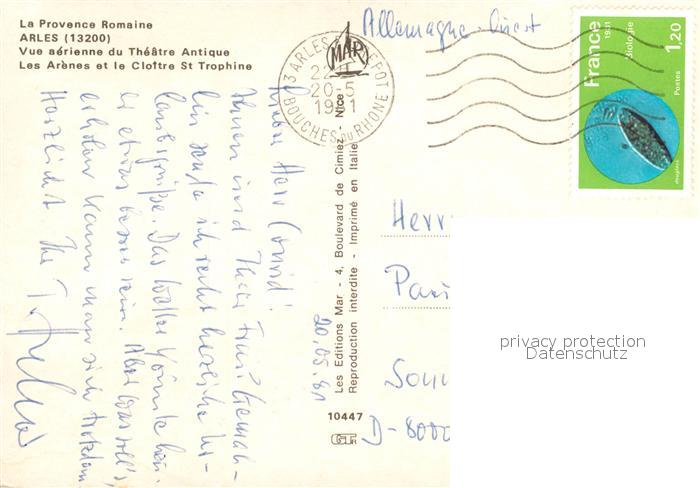 La Provence Romaine
ARLES (13200)
Vue aérienne du Théâtre Antique
Les Arènes et le Cloître St Trophine
Allemagne-Ouest
MAR
13 ARLES DEPOT
20-5
1981
BOUCHES DU RHONE
France
1981
Biologie
1,20
Postes
Lieber Herr
Ihnen und Ihrer Frau Gemah-
lin sende ich recht herzliche Ur-
laubsgrüße. Das Wetter könnte hier
etwas besser sein. Aber was soll's,
erholen kann man sich trotzdem
Herzlichst Ihr
20.05.81
Les Editions Mar - 4, Boulevard de Cimiez - Nice
Reproduction interdite - Imprimé en Italie
10447
Herr
D-8000
privacy protection
Datenschutz